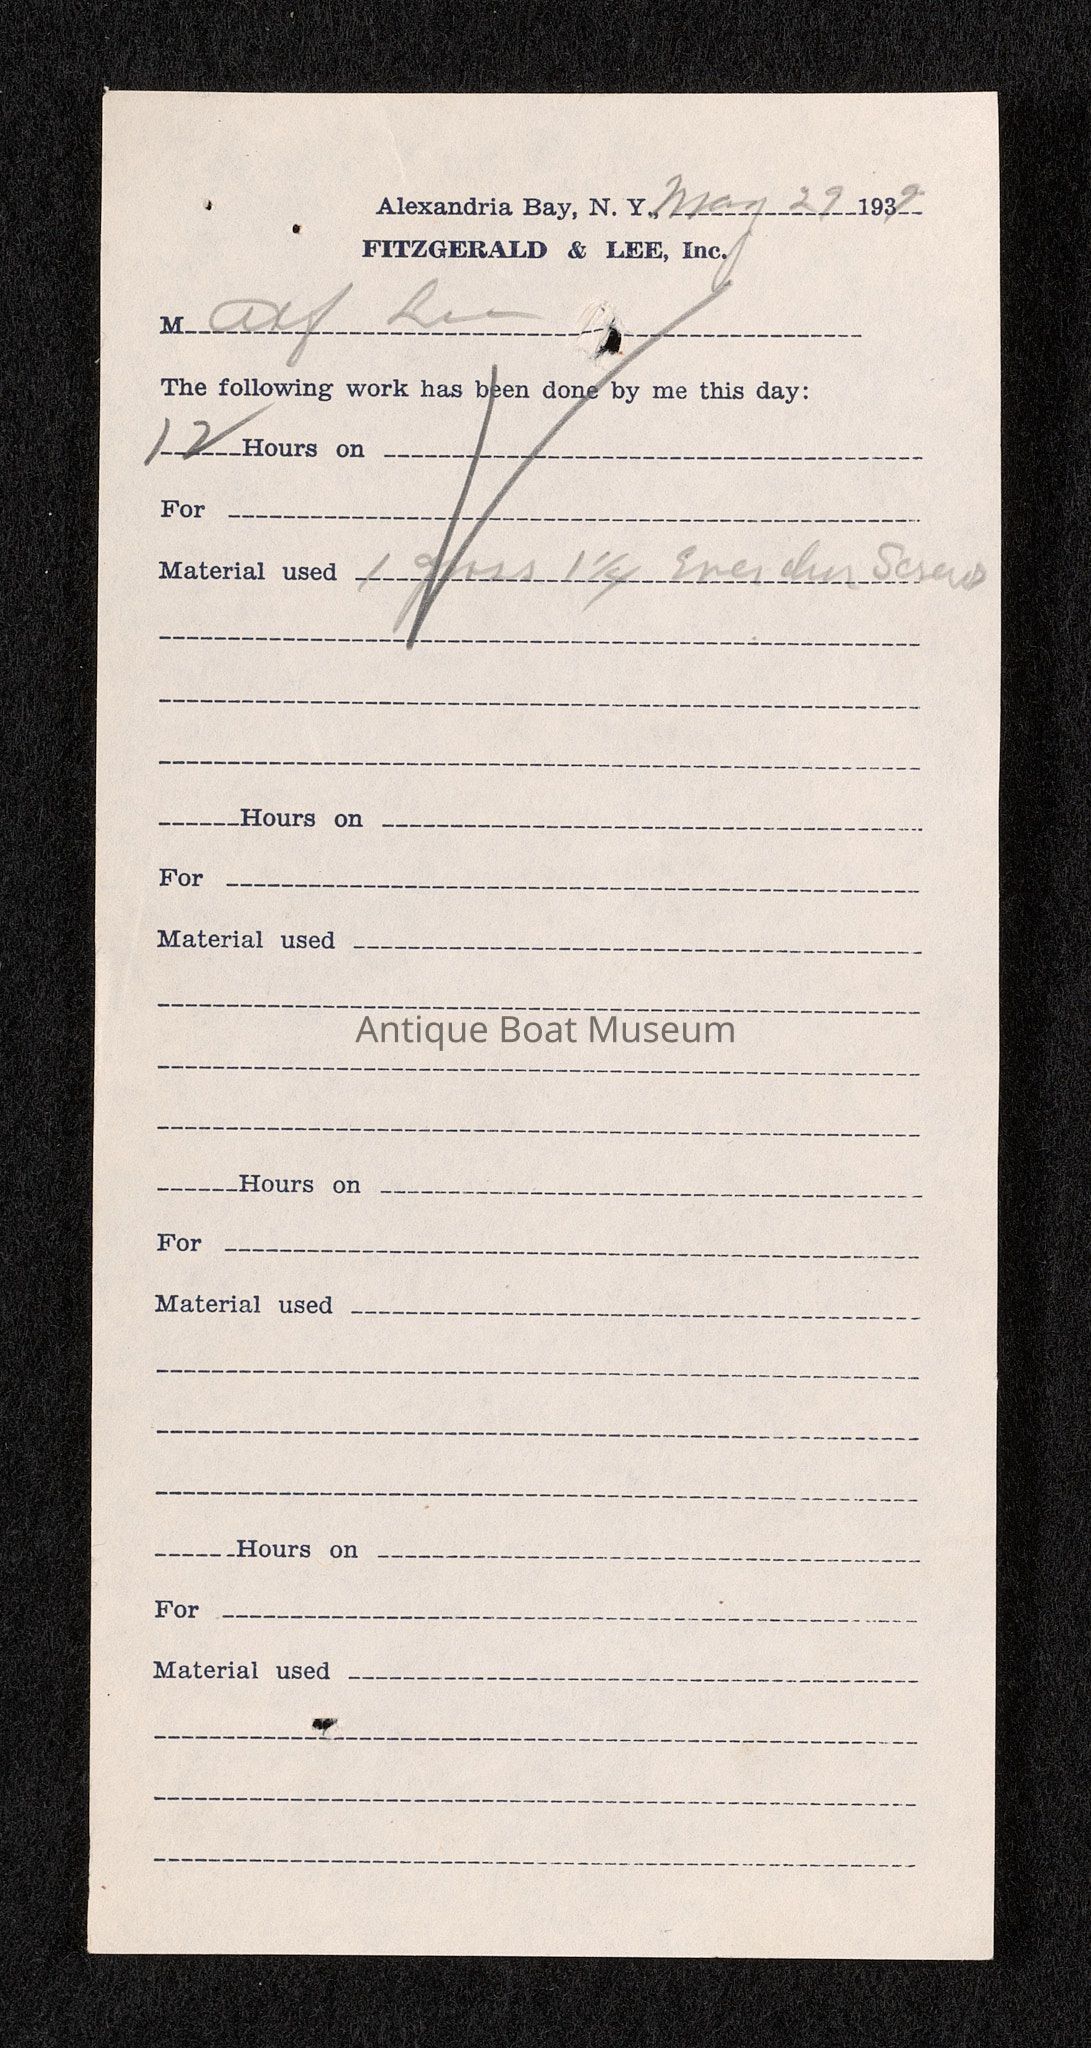 Alexandria Bay, N. Y., May 29 1939
FITZGERALD & LEE, Inc.
M Alf Lee
The following work has been done by me this day:
12 Hours on
For
Material used 1 gross 1 1/4 Everdur Screws
Hours on
For
Material used
Antique Boat Museum
Hours on
For
Material used
Hours on
For
Material used